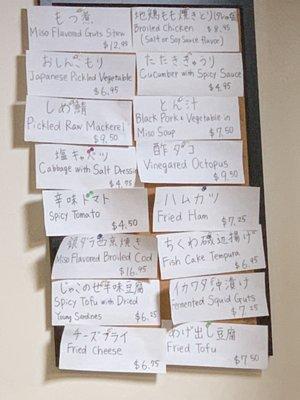 もつ煮
Miso Flavored Guts Stew
$12.95
おしんこもり
Japanese Pickled Vegetable
$6.95
しめ鯖
Pickled Raw Mackerel
$9.50
塩キャベツ
Cabbage with Salt Dressing
$4.95
辛味トマト
Spicy Tomato
$4.50
銀ダラ西京焼き
Miso Flavored Broiled Cod
$16.95
じゃこのせ辛味豆腐
Spicy Tofu with Dried
Young Sardines
$6.25
チーズフライ
Fried Cheese
$6.95
地鶏もも焼き
Broiled Chicken
$8.95
(Salt or Soy Sauce flavor)
たたききゅうり
Cucumber with Spicy Sauce
$4.95
とん汁
Black Pork & Vegetable in
Miso Soup
$7.50
酢ダコ
Vinegared Octopus
$9.50
ハムカツ
Fried Ham
$7.25
ちくわ磯辺揚げ
Fish Cake Tempura
$6.95
イカワタ沖漬け
Fermented Squid Guts
$7.25
あげ出し豆腐
Fried Tofu
$7.50